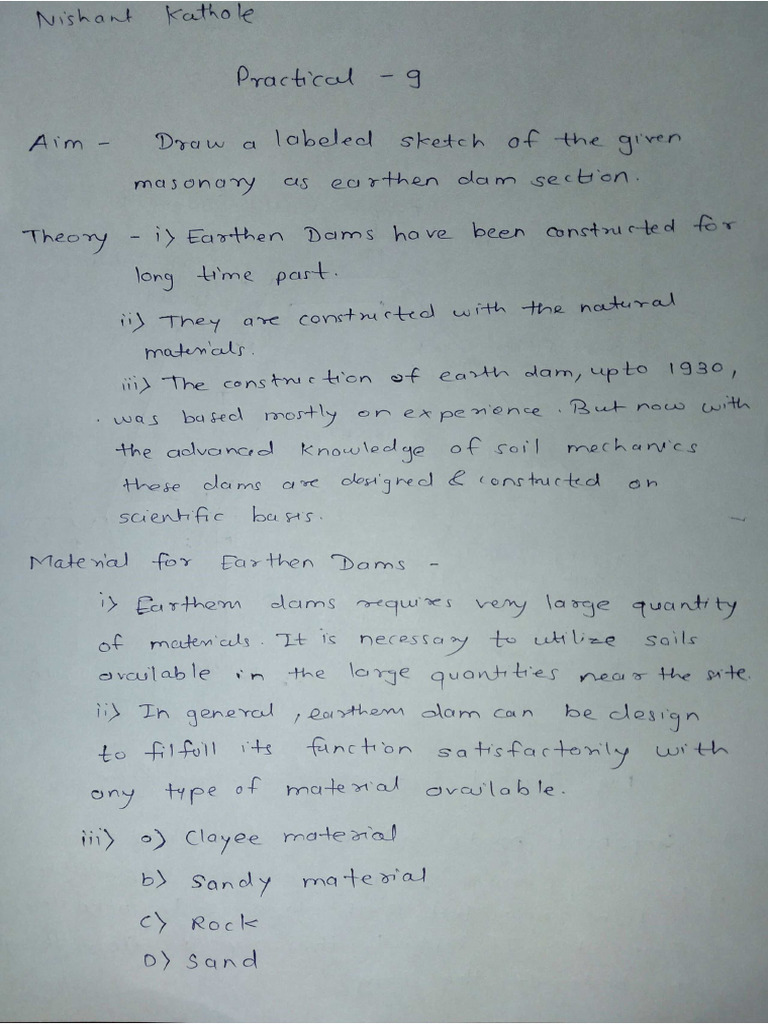 Nishant Kathole
Practical - 9
Aim - Draw a labeled sketch of the given
masonary as earthen dam section.
Theory - i) Earthen Dams have been constructed for
long time past.
ii) They are constructed with the natural
materials.
iii) The construction of earth dam, upto 1930,
was based mostly on experience. But now with
the advanced knowledge of soil mechanics
these dams are designed & constructed on
scientific basis.
Material for Earthen Dams -
i) Earthem dams requires very large quantity
of materials. It is necessary to utilize soils
available in the large quantities near the site.
ii) In general, earthem dam can be design
to filfull its function satisfactorily with
any type of material available.
iii) a) Clayee material
b) Sandy material
C) Rock
D) Sand